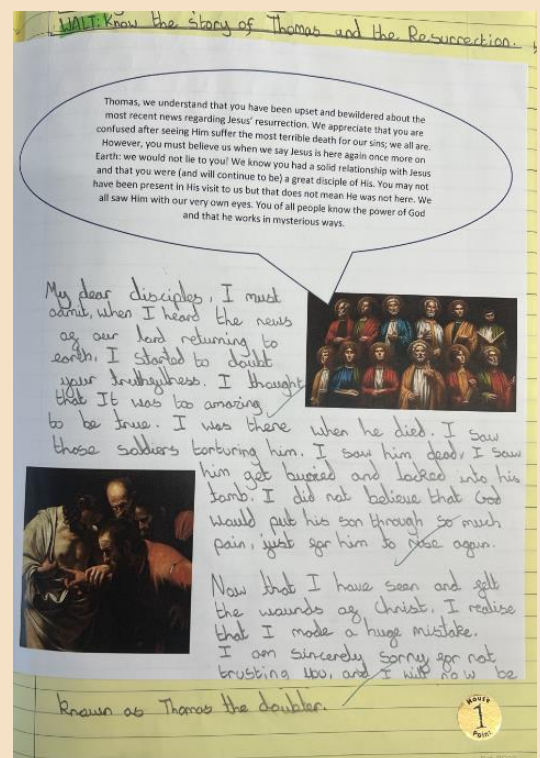 WALT: Know the story of Thomas and the Resurrection.
Thomas, we understand that you have been upset and bewildered about the
most recent news regarding Jesus' resurrection. We appreciate that you are
confused after seeing Him suffer the most terrible death for our sins; we all are.
However, you must believe us when we say Jesus is here again once more on
Earth: we would not lie to you! We know you had a solid relationship with Jesus
and that you were (and will continue to be) a great disciple of His. You may not
have been present in His visit to us but that does not mean He was not here. We
all saw Him with our very own eyes. You of all people know the power of God
and that he works in mysterious ways.
My dear disciples, I must
admit, when I heard the news
of our lord returning to
earth, I started to doubt
your truthfulness. I thought
that It was too amazing
to be true. I was there when he died. I saw
those soldiers torturing him. I saw him dead, I saw
him get buried and locked into his
tomb. I did not believe that God
would put his son through so much
pain, just for him to rise again.
Now that I have seen and felt
the wounds of Christ, I realise
that I made a huge mistake.
I am sincerely sorry for not
trusting you, and I will now be
known as Thomas the doubter.
House
1
Point